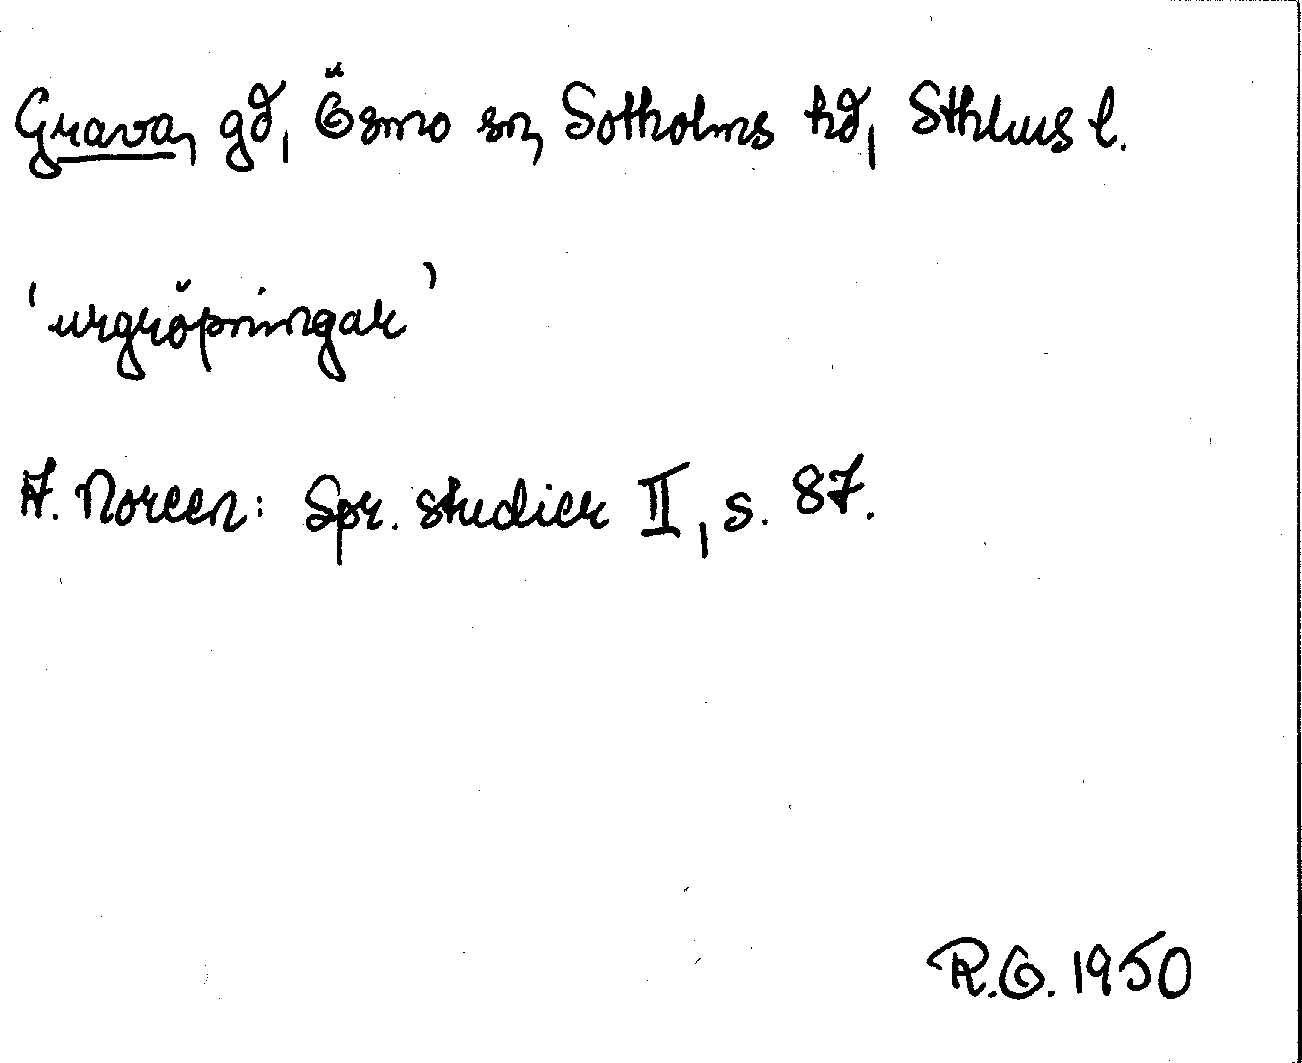 Grava, gd, Ösmo sn, Sotholms hd, Sthlms l.
'urgröpningar'
A. Noreen: Spr. studier II, s. 87.
R.O. 1950